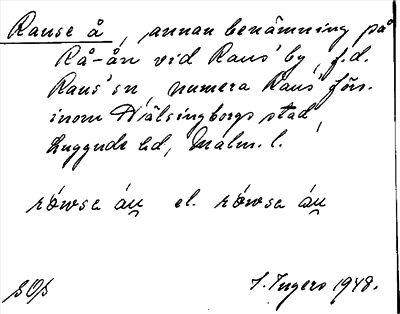 Rause å, annan benämning på
Rå-ån vid Raus' by, f.d.
Raus' sn, numera Raus' förs.
inom Hälsingborgs stad,
Luggude hd, Malm. l.
rówsa áu̯ el. rówsa áu̯
SOB
I. Ingers 1948.